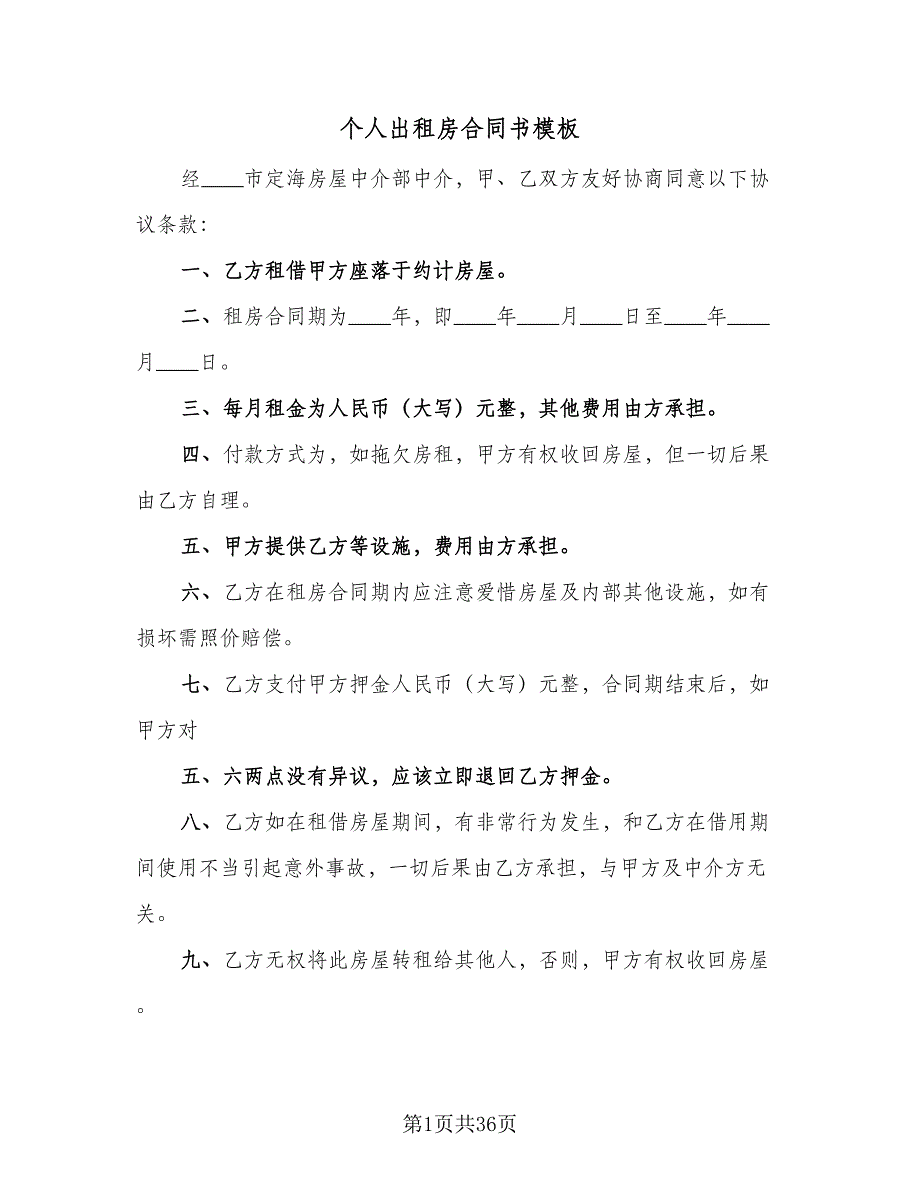 个人出租房合同书模板
经____市定海房屋中介部中介，甲、乙双方友好协商同意以下协
议条款：
一、乙方租借甲方座落于约计房屋。
二、租房合同期为____年，即____年____月____日至____年____
月____日。
三、每月租金为人民币（大写）元整，其他费用由方承担。
四、付款方式为，如拖欠房租，甲方有权收回房屋，但一切后果
由乙方自理。
五、甲方提供乙方等设施，费用由方承担。
六、乙方在租房合同期内应注意爱惜房屋及内部其他设施，如有
损坏需照价赔偿。
七、乙方支付甲方押金人民币（大写）元整，合同期结束后，如
甲方对
五、六两点没有异议，应该立即退回乙方押金。
八、乙方如在租借房屋期间，有非常行为发生，和乙方在借用期
间使用不当引起意外事故，一切后果由乙方承担，与甲方及中介方无
关。
九、乙方无权将此房屋转租给其他人，否则，甲方有权收回房屋
。
第1页共36页